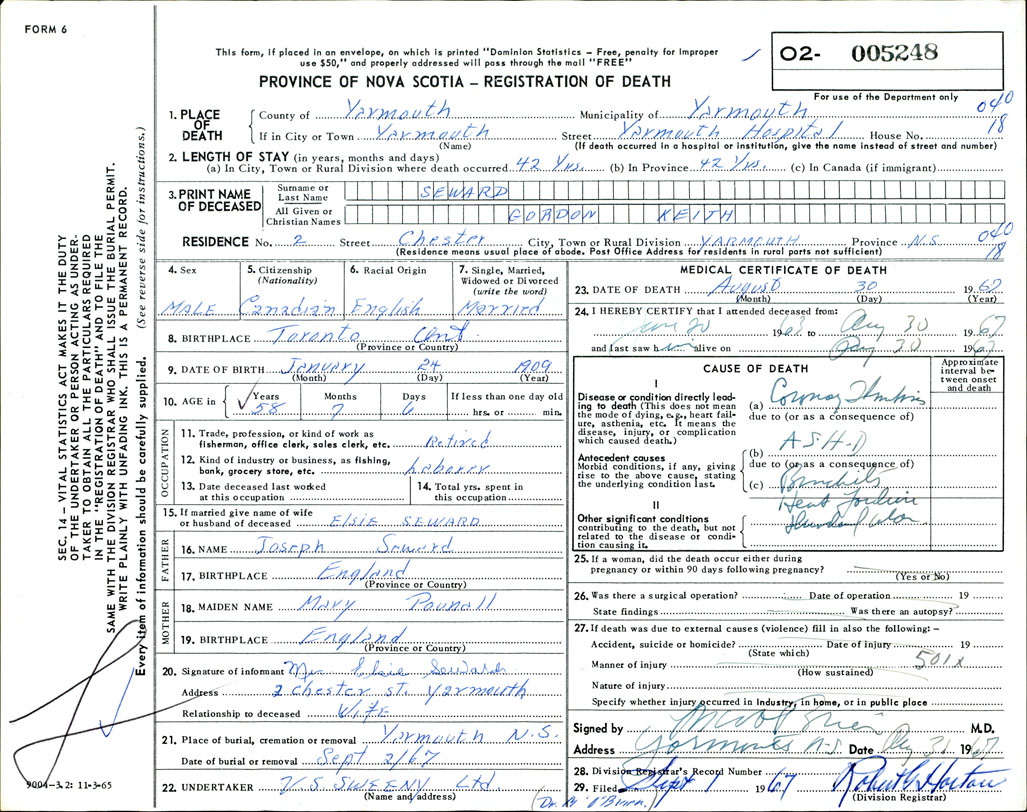 FORM 6
This form, if placed in an envelope, on which is printed "Dominion Statistics – Free, penalty for improper
use $50," and properly addressed will pass through the mail "FREE"
PROVINCE OF NOVA SCOTIA – REGISTRATION OF DEATH
O2- 005248
For use of the Department only
040
18
1. PLACE OF DEATH
County of Yarmouth Municipality of Yarmouth
If in City or Town Yarmouth Street Yarmouth Hospital House No.
(Name) (If death occurred in a hospital or institution, give the name instead of street and number)
2. LENGTH OF STAY (in years, months and days)
(a) In City, Town or Rural Division where death occurred 42 Yrs. (b) In Province 42 Yrs. (c) In Canada (if immigrant)
3. PRINT NAME OF DECEASED
Surname or Last Name SEWARD
All Given or Christian Names GORDON KEITH
RESIDENCE No. 2 Street Chester City, Town or Rural Division YARMOUTH Province N.S. 040
18
(Residence means usual place of abode. Post Office Address for residents in rural parts not sufficient)
4. Sex
MALE
5. Citizenship (Nationality)
Canadian
6. Racial Origin
English
7. Single, Married, Widowed or Divorced (write the word)
Married
8. BIRTHPLACE Toronto Ont.
(Province or Country)
9. DATE OF BIRTH January 24 1909
(Month) (Day) (Year)
10. AGE in Years Months Days If less than one day old
58 7 6 hrs. or min.
OCCUPATION
11. Trade, profession, or kind of work as
fisherman, office clerk, sales clerk, etc. Retired
12. Kind of industry or business, as fishing,
bank, grocery store, etc. Laborer
13. Date deceased last worked
at this occupation
14. Total yrs. spent in
this occupation
15. If married give name of wife
or husband of deceased ELSIE SEWARD
FATHER
16. NAME Joseph Seward
17. BIRTHPLACE England
(Province or Country)
MOTHER
18. MAIDEN NAME Mary
19. BIRTHPLACE England
(Province or Country)
20. Signature of informant Mrs Elsie Seward
Address 2 chester st. Yarmouth
Relationship to deceased WIFE
21. Place of burial, cremation or removal Yarmouth N.S.
Date of burial or removal Sept 2/67
22. UNDERTAKER V.S. SWEENY Ltd
(Name and address)
MEDICAL CERTIFICATE OF DEATH
23. DATE OF DEATH August 30 1967
(Month) (Day) (Year)
24. I HEREBY CERTIFY that I attended deceased from:
20 1967 to Aug 30 1967
and last saw him alive on Aug 30 1967
CAUSE OF DEATH
Approximate interval between onset and death
I
Disease or condition directly lead-
ing to death (This does not mean
the mode of dying, e.g., heart fail-
ure, asthenia, etc. It means the
disease, injury, or complication
which caused death.)
(a) Coronary Thrombosis
due to (or as a consequence of)
Antecedent causes
Morbid conditions, if any, giving
rise to the above cause, stating
the underlying condition last.
A.S.H.D
(b)
due to (or as a consequence of)
(c) Bronchitis
Heart Failure
II
Other significant conditions
contributing to the death, but not
related to the disease or condi-
tion causing it.
25. If a woman, did the death occur either during
pregnancy or within 90 days following pregnancy?
(Yes or No)
26. Was there a surgical operation? Date of operation 19
State findings Was there an autopsy?
27. If death was due to external causes (violence) fill in also the following: –
Accident, suicide or homicide? Date of injury 19
(State which)
Manner of injury 501x
(How sustained)
Nature of injury
Specify whether injury occurred in Industry, in home, or in public place
Signed by M.D.
Address Yarmouth N.S. Date Aug 31 1967
28. Division Registrar's Record Number
29. Filed Sept 1 1967 Robert Horton
(Division Registrar)
(Dr. O'Brien)
SEC. 14 – VITAL STATISTICS ACT MAKES IT THE DUTY
OF THE UNDERTAKER OR PERSON ACTING AS UNDER-
TAKER TO OBTAIN ALL THE PARTICULARS REQUIRED
IN THE "REGISTRATION OF DEATH" AND TO FILE THE
SAME WITH THE DIVISION REGISTRAR WHO SHALL ISSUE THE BURIAL PERMIT.
WRITE PLAINLY WITH UNFADING INK. THIS IS A PERMANENT RECORD.
Every item of information should be carefully supplied. (See reverse side for instructions.)
9004-3.2: 11-3-65